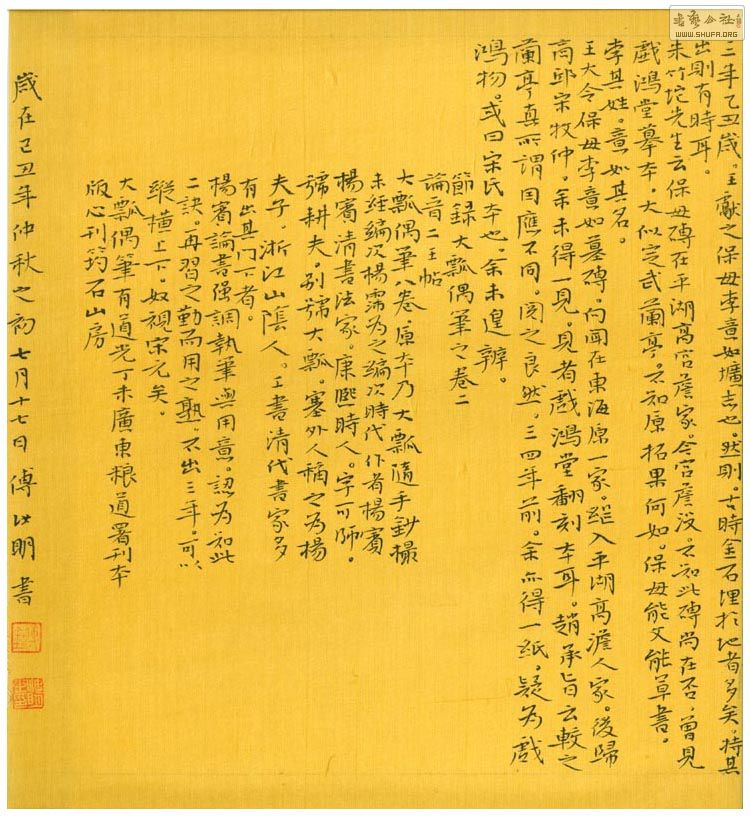 三年乙丑歲。王獻之保母李意如壙志也。然則。古時金石埋於地者多矣。特其
出則有時耳。
朱竹垞先生云保母磚在平湖高宮詹家。今宮詹沒。不知此磚尚在否，曾見
戲鴻堂摹本，大似定武蘭亭。不知原拓果何如。保母能文能草書。
李其姓。意如其名。
王大令保母李意如墓磚。向聞在東海原一家。繼入平湖高澹人家。後歸
商邱宋牧仲。余未得一見。見者戲鴻堂翻刻本耳。趙承旨云較之
蘭亭真所謂因應不同。閱之良然。三四年前。余亦得一紙，疑為戲
鴻物。或曰宋氏本也。余未遑辨。
節錄大瓢偶筆之卷二
論晉二王帖
大瓢偶筆八卷，原本乃大瓢隨手鈔撮
未經編次楊霈為之編次時代作者楊賓
楊賓清書法家。康熙時人。字可師。
號耕夫。別號大瓢。塞外人稱之為楊
夫子，浙江山陰人。工書清代書家多
有出其門下者。
楊賓論書强調執筆與用意。認為知此
二訣。再習之勤而用之熟。不出三年。可以
縱橫上下。奴視宋元矣。
大瓢偶筆有道光丁未廣東粮道署刊本
版心刊筠石山房
歲在己丑年仲秋之初七月十七日傅明書
WWW.SHUFA.ORG